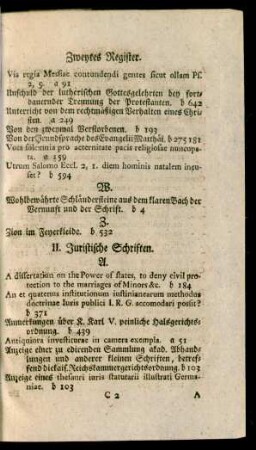 Zweytes Register.
Via regia Messiae contondendi gentes sicut ollam Ps.
2, 9. a 91
Unschuld der lutherischen Gottesgelehrten bey fort-
dauernder Trennung der Protestanten. b 642
Unterricht von dem rechtmäßigen Verhalten eines Chri-
sten. a 249
Von den zweymal Verstorbenen. b 193
Von der Grundsprache des Evangelii Matthäi. b 275 181
Voce solennis pro aeternitate pacis religiosae nuncupa-
ta. a 359
Utrum Salomo Eccl. 2, 1. diem hominis natalem incu-
set? b 594
W.
Wohlbewährte Schlåndersteine aus dem klaren Bach der
Vernunft und der Schrift. b 4
Z.
Zion im Feyerkleide. b 532
II. Juristische Schriften.
A.
A dissertation on the Power of states, to deny civil pro-
tection to the marriages of Minors &c. b 184
An et quatenus institutionum iustinianearum methodus
doctrinae Iuris publici I. R. G. accomodari possit?
b 371
Anmerkungen über K. Karl V. peinliche Halsgerichts-
ordnung. b 439
Antiquāna investiturae in camera exempla. a 51
Anzeige einer zu edirenden Sammlung akad. Abhand-
lungen und anderer kleinen Schriften, betref-
fend die kais. Reichskammergerichtsordnung. b 103
Anzeige eines thesauri iuris statutarii illustrati Germa-
niae. b 103
C 2 A